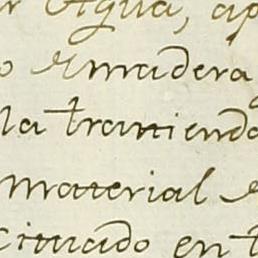 Agua, ap
o de madera
la traniendo
material de
cituado en